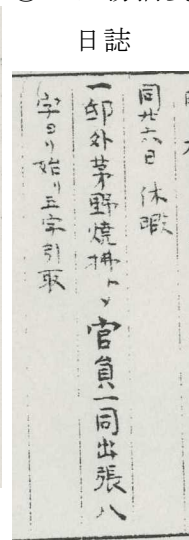 日誌
同廿六日 休暇
一邸外茅野焼拂トシテ官員一同出張八
字ヨリ始リ三字引取